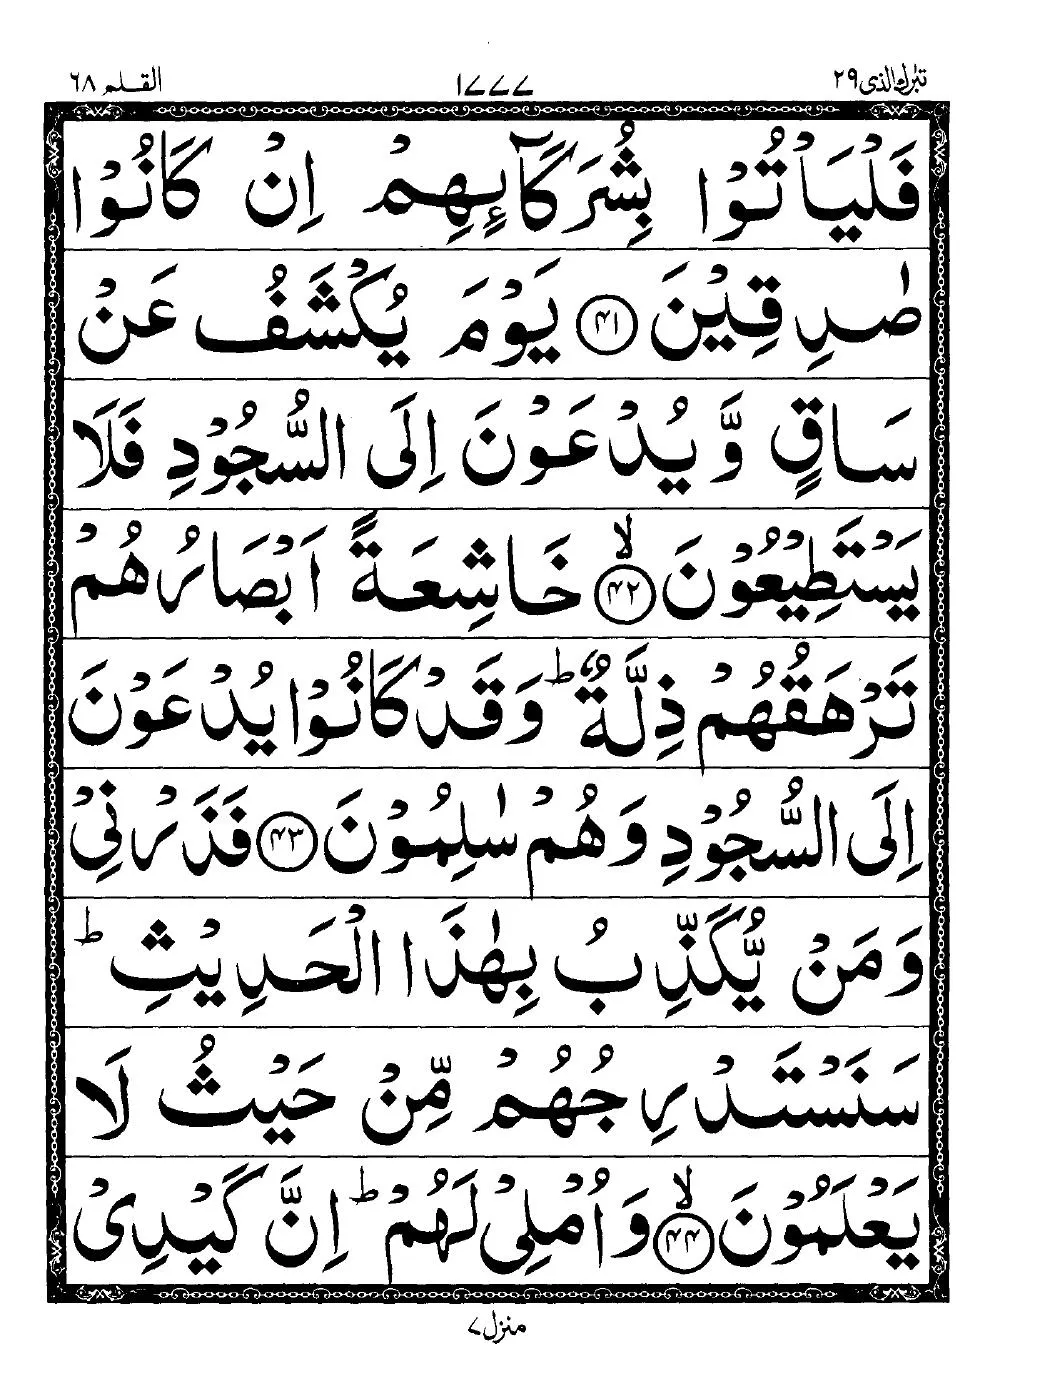 تبٰرك الذی ٢٩
١٧٧٧
القلم ٦٨
فَلْيَاْتُوْا بِشُرَكَآئِهِمْ اِنْ كَانُوْا
صٰدِقِيْنَ ﴿۴۱﴾ يَوْمَ يُكْشَفُ عَنْ
سَاقٍ وَّ يُدْعَوْنَ اِلَى السُّجُوْدِ فَلَا
يَسْتَطِيْعُوْنَ ﴿۴۲﴾ۙ خَاشِعَةً اَبْصَارُهُمْ
تَرْهَقُهُمْ ذِلَّةٌ ؕ وَ قَدْ كَانُوْا يُدْعَوْنَ
اِلَى السُّجُوْدِ وَ هُمْ سٰلِمُوْنَ ﴿۴۳﴾ فَذَرْنِيْ
وَ مَنْ يُّكَذِّبُ بِهٰذَا الْحَدِيْثِ ؕ
سَنَسْتَدْرِجُهُمْ مِّنْ حَيْثُ لَا
يَعْلَمُوْنَ ﴿۴۴﴾ۙ وَ اُمْلِيْ لَهُمْ ؕ اِنَّ كَيْدِيْ
منزل ٧